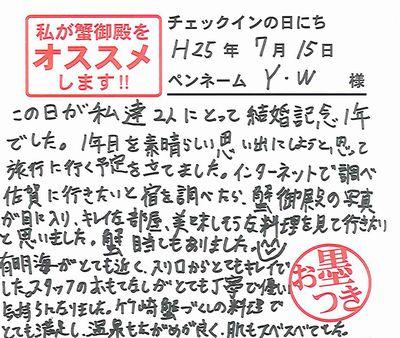 私が蟹御殿を
オススメ
します!!
チェックインの日にち
H25年 7月15日
ペンネーム Y・W 様
この日が私達2人にとって結婚記念1年
でした。1年目を素晴らしい思い出にしようと思って
旅行に行く予定を立てました。インターネットで調べ
佐賀に行きたいと宿を調べたら、蟹御殿の写真
が目に入り、キレイな部屋、美味しそうな料理を見て行きたい
と思いました。蟹 時でもありました。
有明海がとても近く、入り口からとてもキレイで
した。スタッフのおもてなしがとても丁寧で優しい
気持ちになりました。竹崎蟹づくしの料理で
とても満足し、温泉もながめが良く、肌もスベスベでした。
お墨
つき